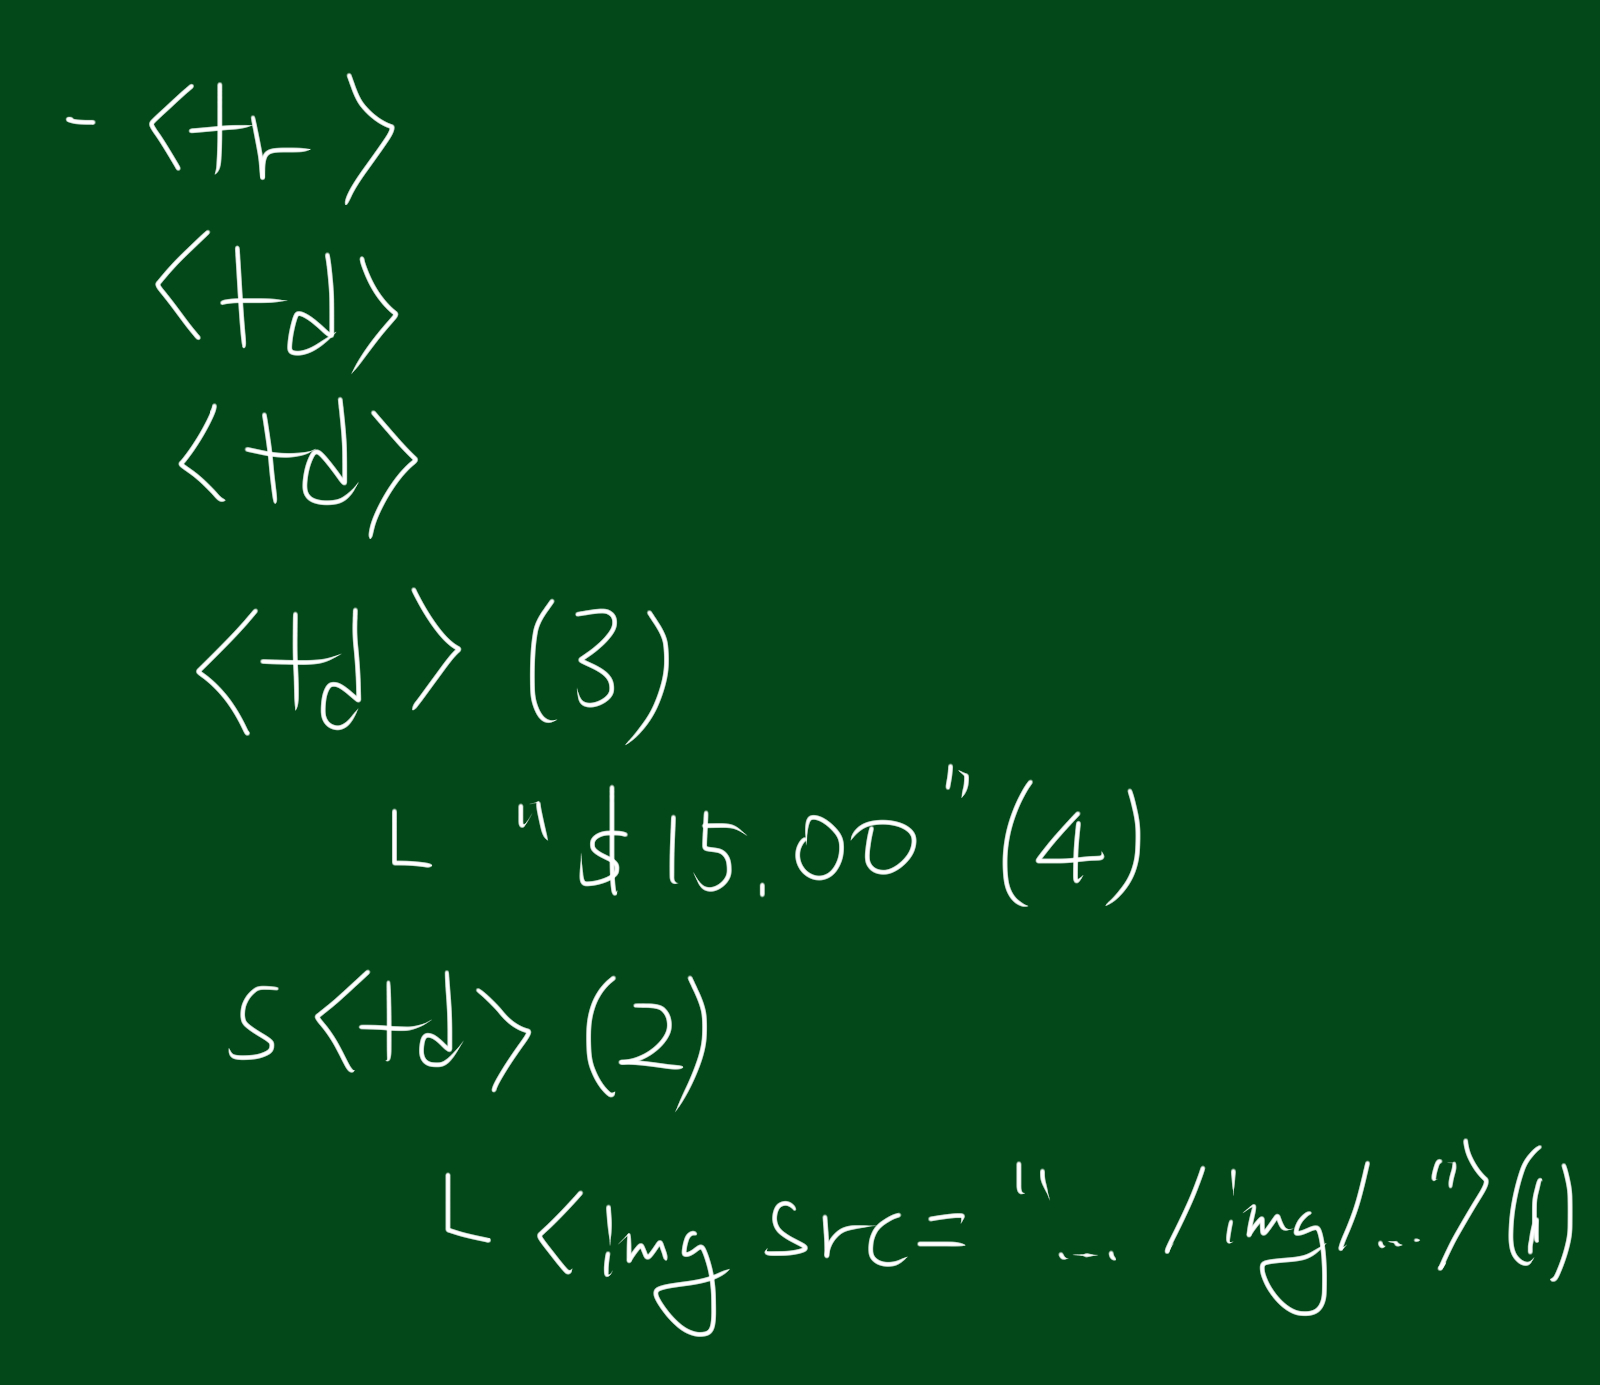 - <tr>
<td>
<td>
<td> (3)
└ "$15.00" (4)
S <td> (2)
└ <img src="... /img/..."> (1)